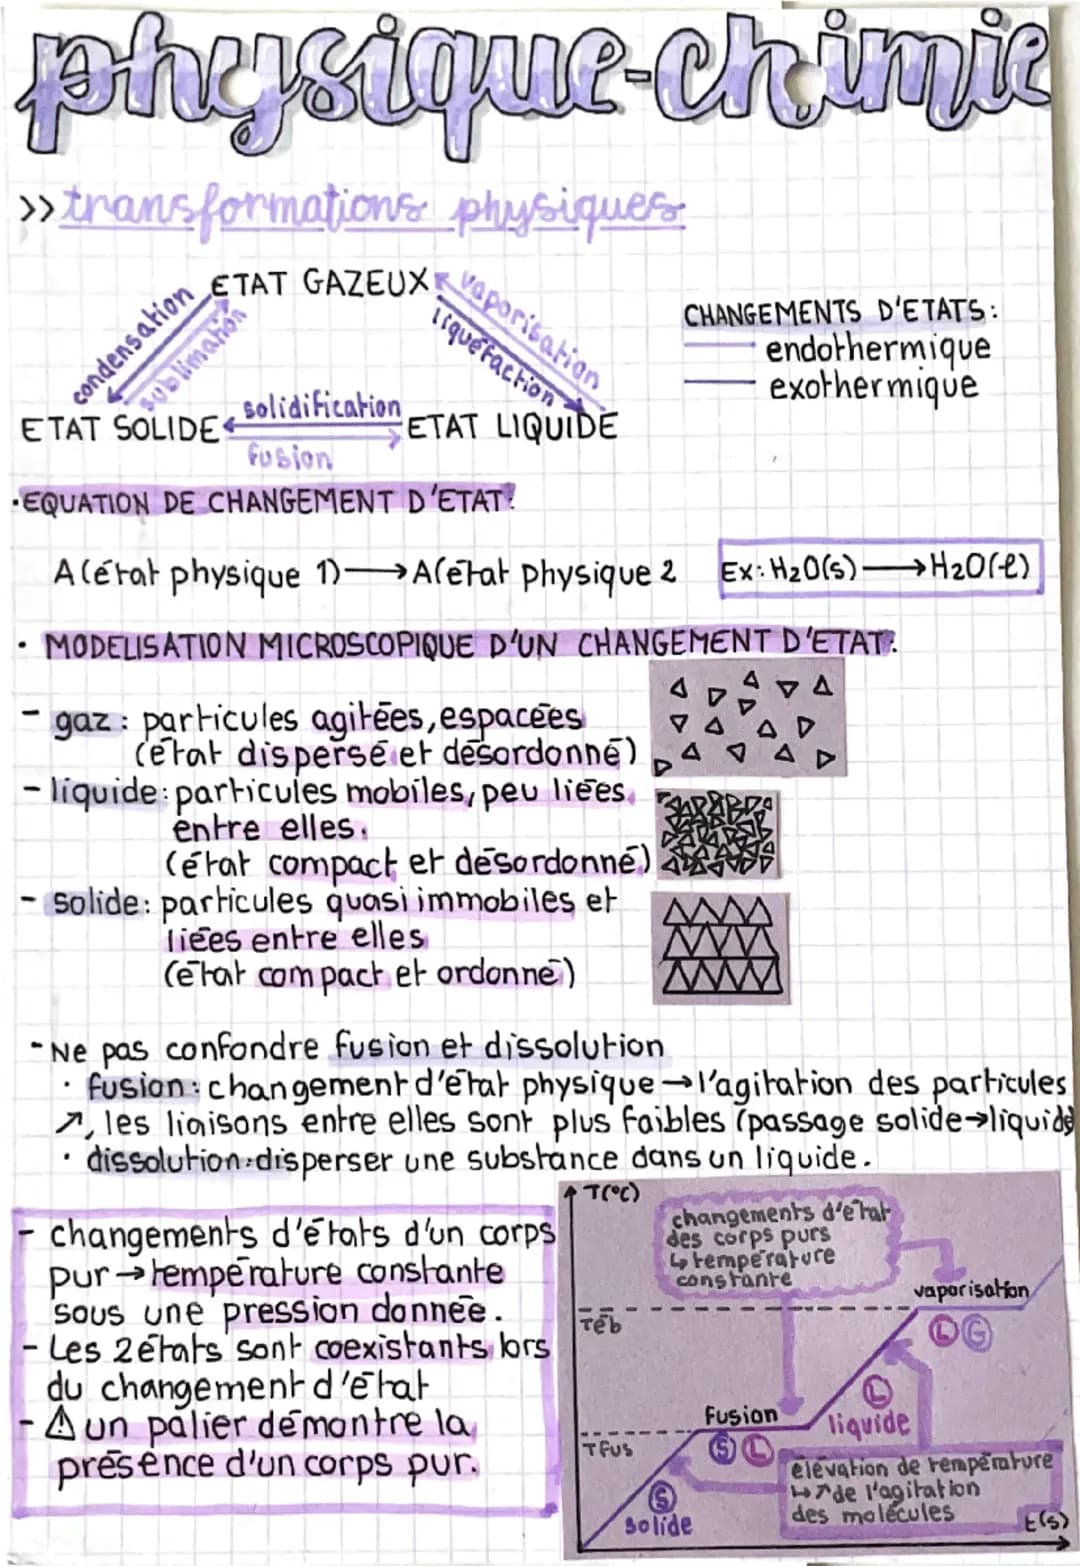 physique-chimie
>> transformations physiques
ETAT GAZEUX
condensation
sublimation
vaporisation
liquéfaction
CHANGEMENTS D'ETATS:
endothermique
exothermique
ETAT SOLIDE
solidification
fusion
ETAT LIQUIDE
·EQUATION DE CHANGEMENT D'ETAT:
A(état physique 1)→A(état physique 2
Ex: H2O(s)→H2O(l)
· MODELISATION MICROSCOPIQUE D'UN CHANGEMENT D'ETAT:
- gaz: particules agitées, espacées
(état dispersé et désordonné)
- liquide: particules mobiles, peu liées
entre elles.
(état compact et désordonné)
- solide: particules quasi immobiles et
liées entre elles
(état compact et ordonné)
- Ne pas confondre fusion et dissolution
· fusion: changement d'état physique→l'agitation des particules
↗, les liaisons entre elles sont plus faibles (passage solide→liquide)
· dissolution: disperser une substance dans un liquide.
- changements d'états d'un corps
pur→température constante
sous une pression donnée.
- Les 2 états sont coexistants lors
du changement d'état
- ⚠ un palier démontre la
présence d'un corps pur.
T(°C)
changements d'état
des corps purs
↳ température
constante
vaporisation
Téb
L G
L
liquide
Fusion
Tfus
S L
S
solide
élévation de température
↳ ↗ de l'agitation
des molécules
t(s)